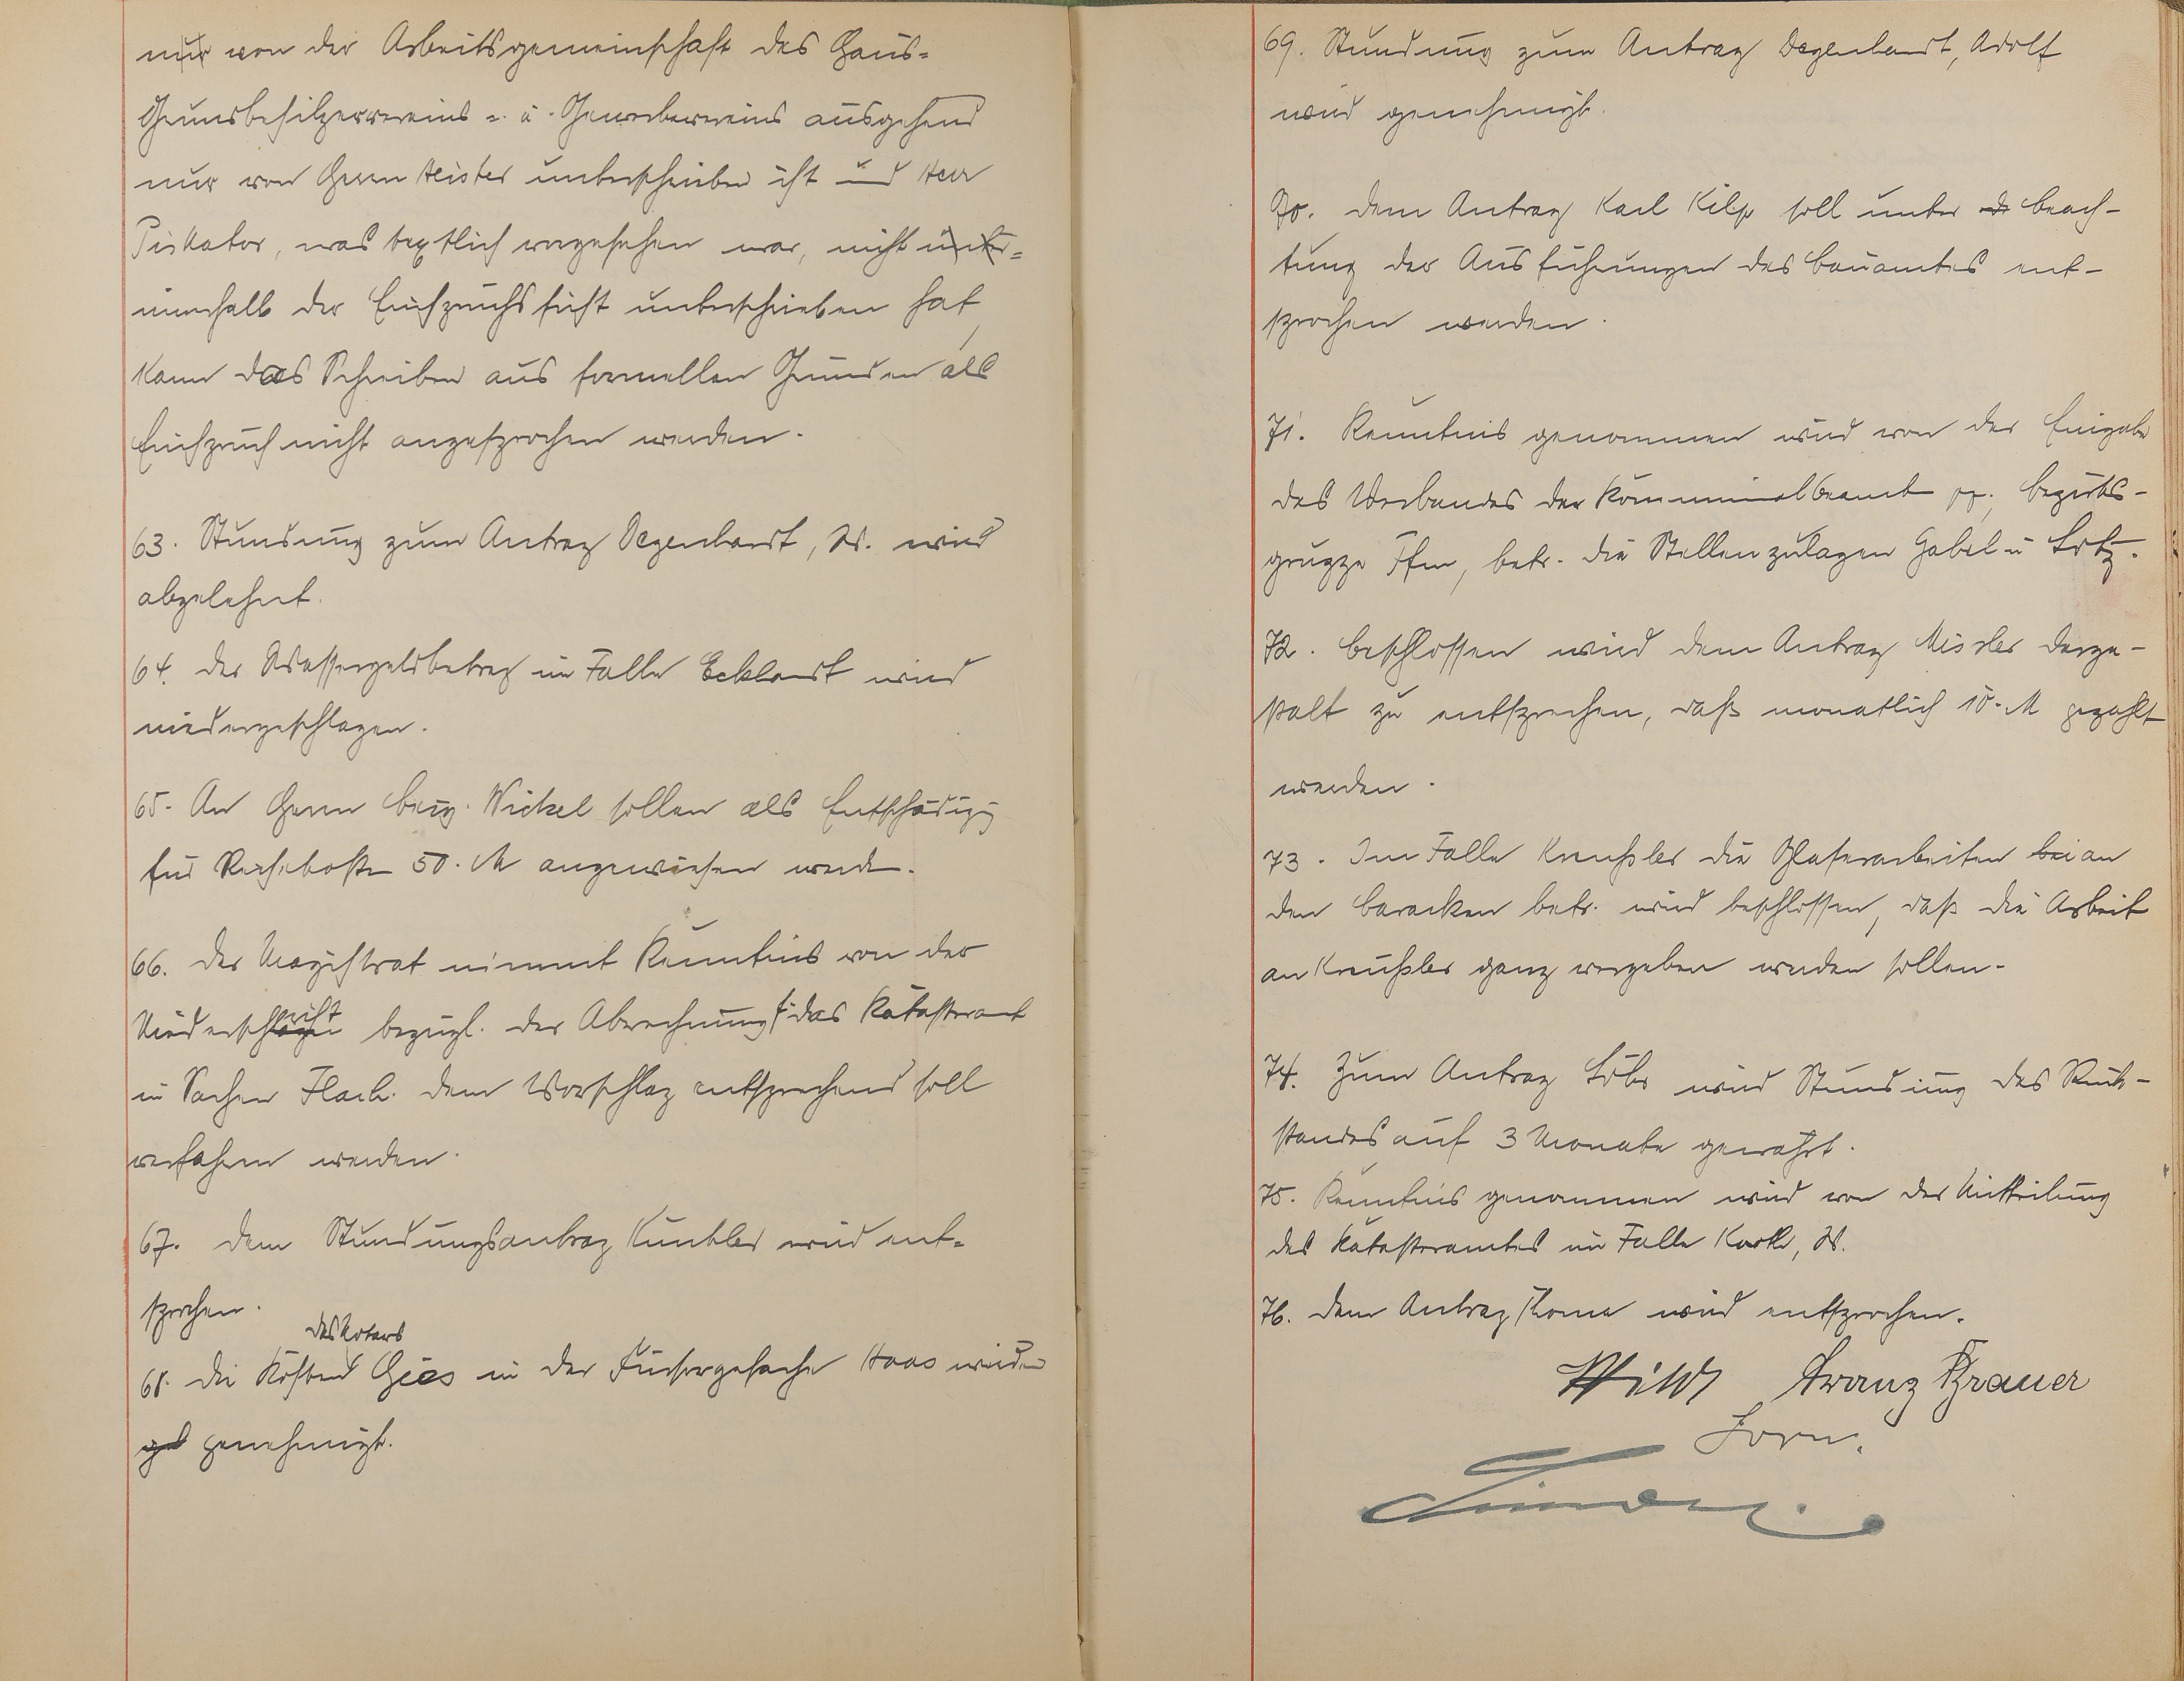 nur von der Arbeitsgemeinschaft des Haus-
Grundbesitzervereins u. Gewerbevereins ausgehend
nur von Herrn Meister unterschrieben ist und Herr
Piskator, was textlich vorgesehen war, nicht unter-
innerhalb der Einspruchsfrist unterschrieben hat,
kann das Schreiben aus formellen Gründen als
Einspruch nicht angesprochen werden.
63. Stundung zum Antrag Degenhardt, W. wird
abgelehnt.
64. Der Wassergeldbetrag im Falle Eckhardt wird
niedergeschlagen.
65. An Herrn Beig. Nickel sollen als Entschädigg
für Reisekosten 50.M angewiesen werden.
66. Der Magistrat nimmt Kenntnis von der
Niederschrift bezügl. der Abrechnung f. das Katasteramt
in Sachen Flach. Dem Vorschlag entsprechend soll
verfahren werden.
67. Dem Stundungsantrag Künkler wird ent-
sprochen.
des Notars
68. Die Kosten Gies in der Fürsorgesache Haas werden
genehmigt.
69. Stundung zum Antrag Degenhardt, Adolf
wird genehmigt.
70. Dem Antrag Karl Kilp soll unter Beach-
tung der Ausführungen des Bauamtes ent-
sprochen werden.
71. Kenntnis genommen wird von der Eingabe
des Verbandes der Kommunalbeamt pp., Bezirks-
gruppe Ffm, betr. die Stellenzulagen Gabel u Lotz.
72. Beschlossen wird dem Antrag Missler derge-
stalt zu entsprechen, daß monatlich 10.M gezahlt
werden.
73. Im Falle Kreußler die Glaserarbeiten bei an
den Baracken betr. wird beschlossen, daß die Arbeit
an Kreußler ganz vergeben werden sollen.
74. Zum Antrag Löber wird Stundung des Rück-
standes auf 3 Monate gewährt.
75. Kenntnis genommen wird von der Mitteilung
des Katasteramtes im Falle Kark, W.
76. Dem Antrag wird entsprochen.
Franz Brauer
Forn.